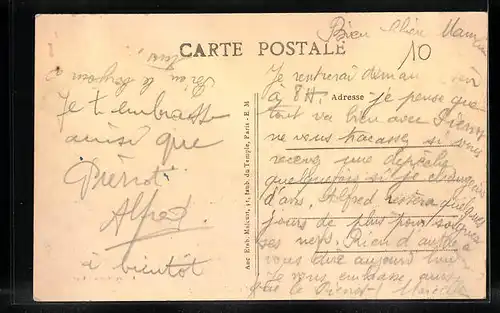 Bien Chère Maman
CARTE POSTALE
10
Je rentrerai demain soir
à 8H. Adresse je pense que
tout va bien avec Pierrot
ne vous tracassez si vous
recevez une dépêche
quelquefois si je changeais
d'avis. Alfred restera quelques
jours de plus pour soigner
ses nerfs. Rien d'autre à
vous dire aujourd'hui
Je vous embrasse ainsi
que le Pierrot Marcelle
Je t'embrasse
ainsi que
Pierrot.
Alfred.
à bientôt
Anc. Etab. Malcuit, 41, faub. du Temple, Paris - E. M